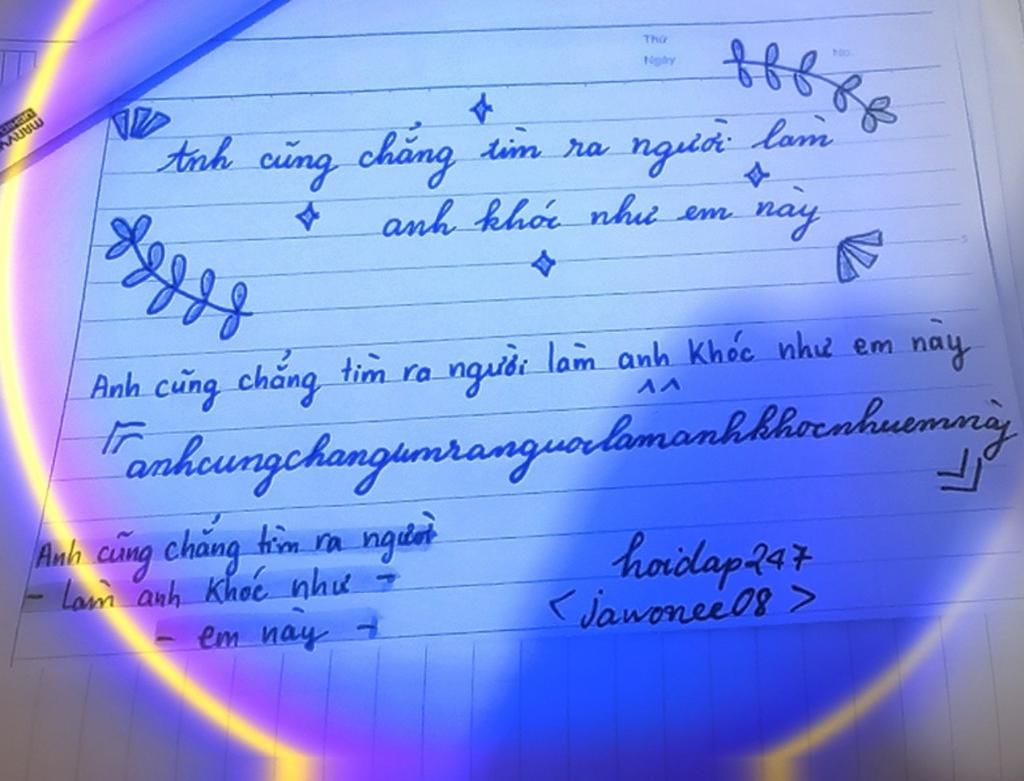 Thứ
Ngày
No.
Anh cũng chẳng tìm ra người làm
anh khóc như em này
Anh cũng chẳng tìm ra người làm anh khóc như em này
^^
anhcungchangtimranguoilamanhkhocnhuemnày
Anh cũng chẳng tìm ra người
- làm anh khóc như -
- em này -
hoidap247
<jawonee08>